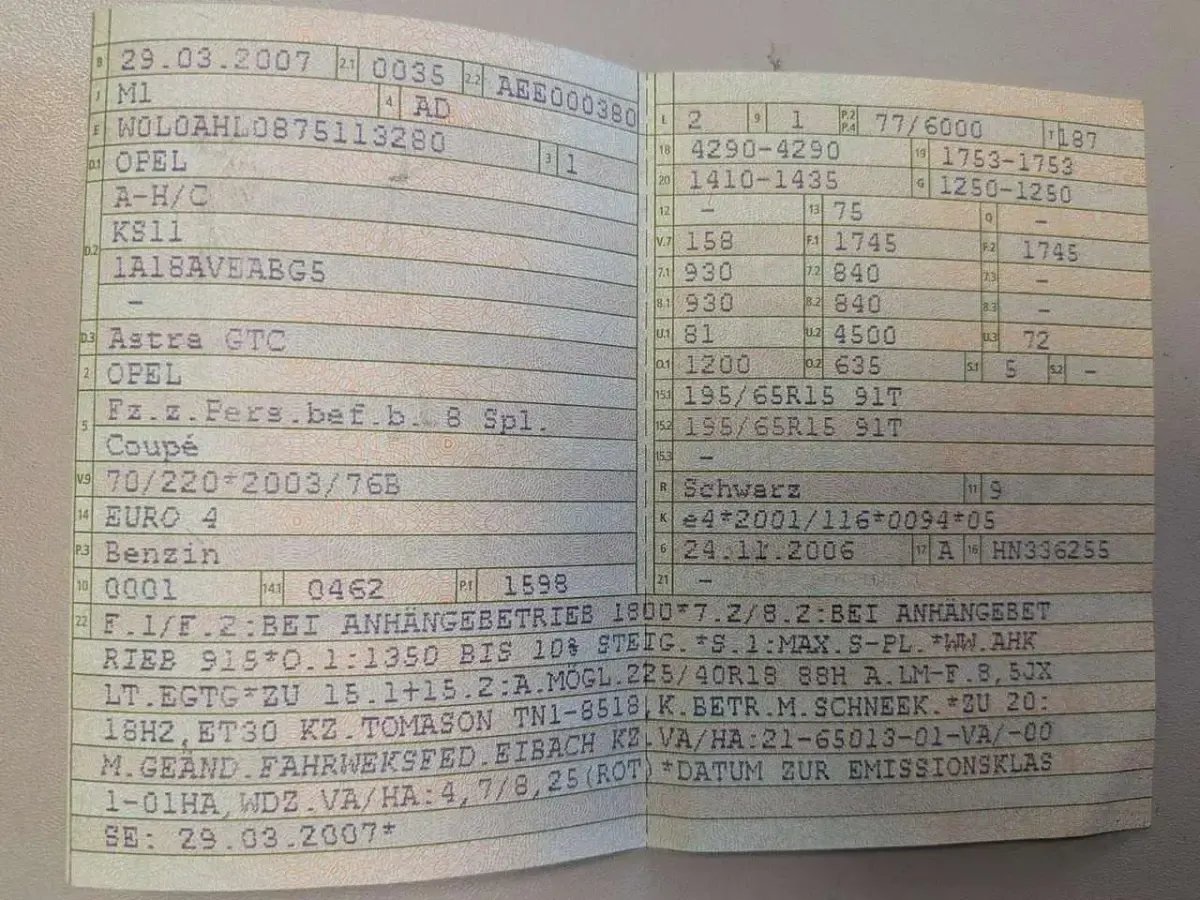 B 29.03.2007 2.1 0035 2.2 AEE000380
J M1 4 AD
E W0L0AHL0875113280 3 1
D.1 OPEL
A-H/C
D.2 KS11
1A18AVEABG5
-
D.3 Astra GTC
2 OPEL
5 Fz.z.Pers.bef.b. 8 Spl.
Coupé
V.9 70/220*2003/76B
14 EURO 4
P.3 Benzin
10 0001 14.1 0462 P.1 1598
L 2 9 1 P.2 P.4 77/6000 T 187
18 4290-4290 19 1753-1753
20 1410-1435 G 1250-1250
12 - 13 75 Q -
V.7 158 F.1 1745 F.2 1745
7.1 930 7.2 840 7.3 -
8.1 930 8.2 840 8.3 -
U.1 81 U.2 4500 U.3 72
O.1 1200 O.2 635 S.1 5 S.2 -
15.1 195/65R15 91T
15.2 195/65R15 91T
15.3 -
R Schwarz 11 9
K e4*2001/116*0094*05
6 24.11.2006 17 A 16 HN336255
21 -
22 F.1/F.2:BEI ANHÄNGEBETRIEB 1800*7.2/8.2:BEI ANHÄNGEBET
RIEB 915*O.1:1350 BIS 10% STEIG.*S.1:MAX.S-PL.*WW.AHK
LT.EGTG*ZU 15.1+15.2:A.MÖGL.225/40R18 88H A.LM-F.8,5JX
18H2,ET30 KZ.TOMASON TN1-8518,K.BETR.M.SCHNEEK.*ZU 20:
M.GEÄND.FAHRWEKSFED.EIBACH KZ.VA/HA:21-65013-01-VA/-00
1-01HA,WDZ.VA/HA:4,7/8,25(ROT)*DATUM ZUR EMISSIONSKLAS
SE: 29.03.2007*